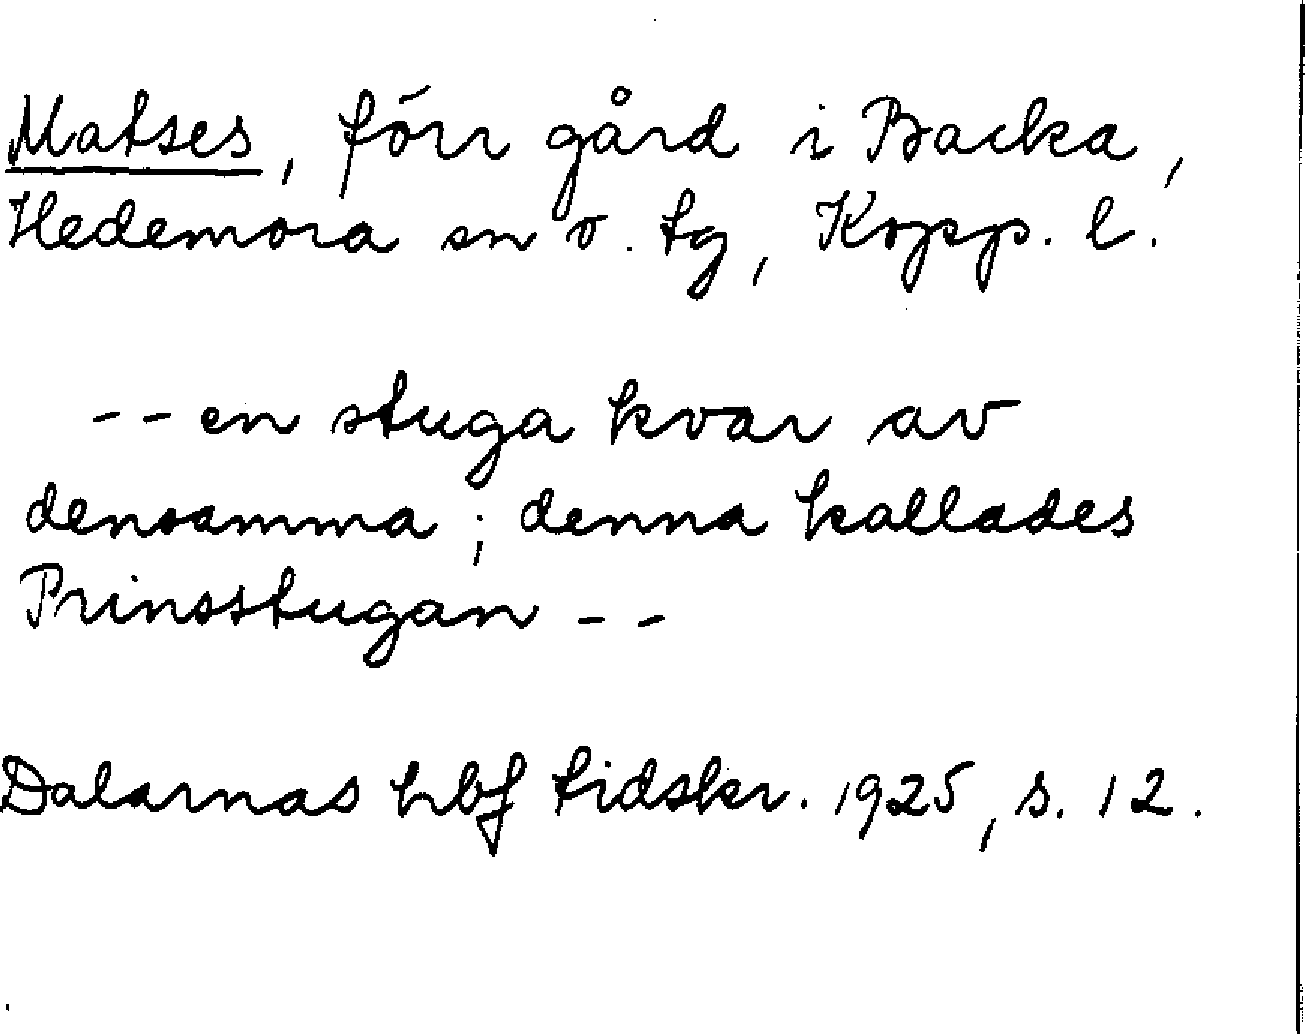 Matses, förr gård i Backa,
Hedemora sn o. tg, Kopp. l.
-- en stuga kvar av
densamma; denna kallades
Prinsstugan --
Dalarnas hbf tidskr. 1925, s. 12.